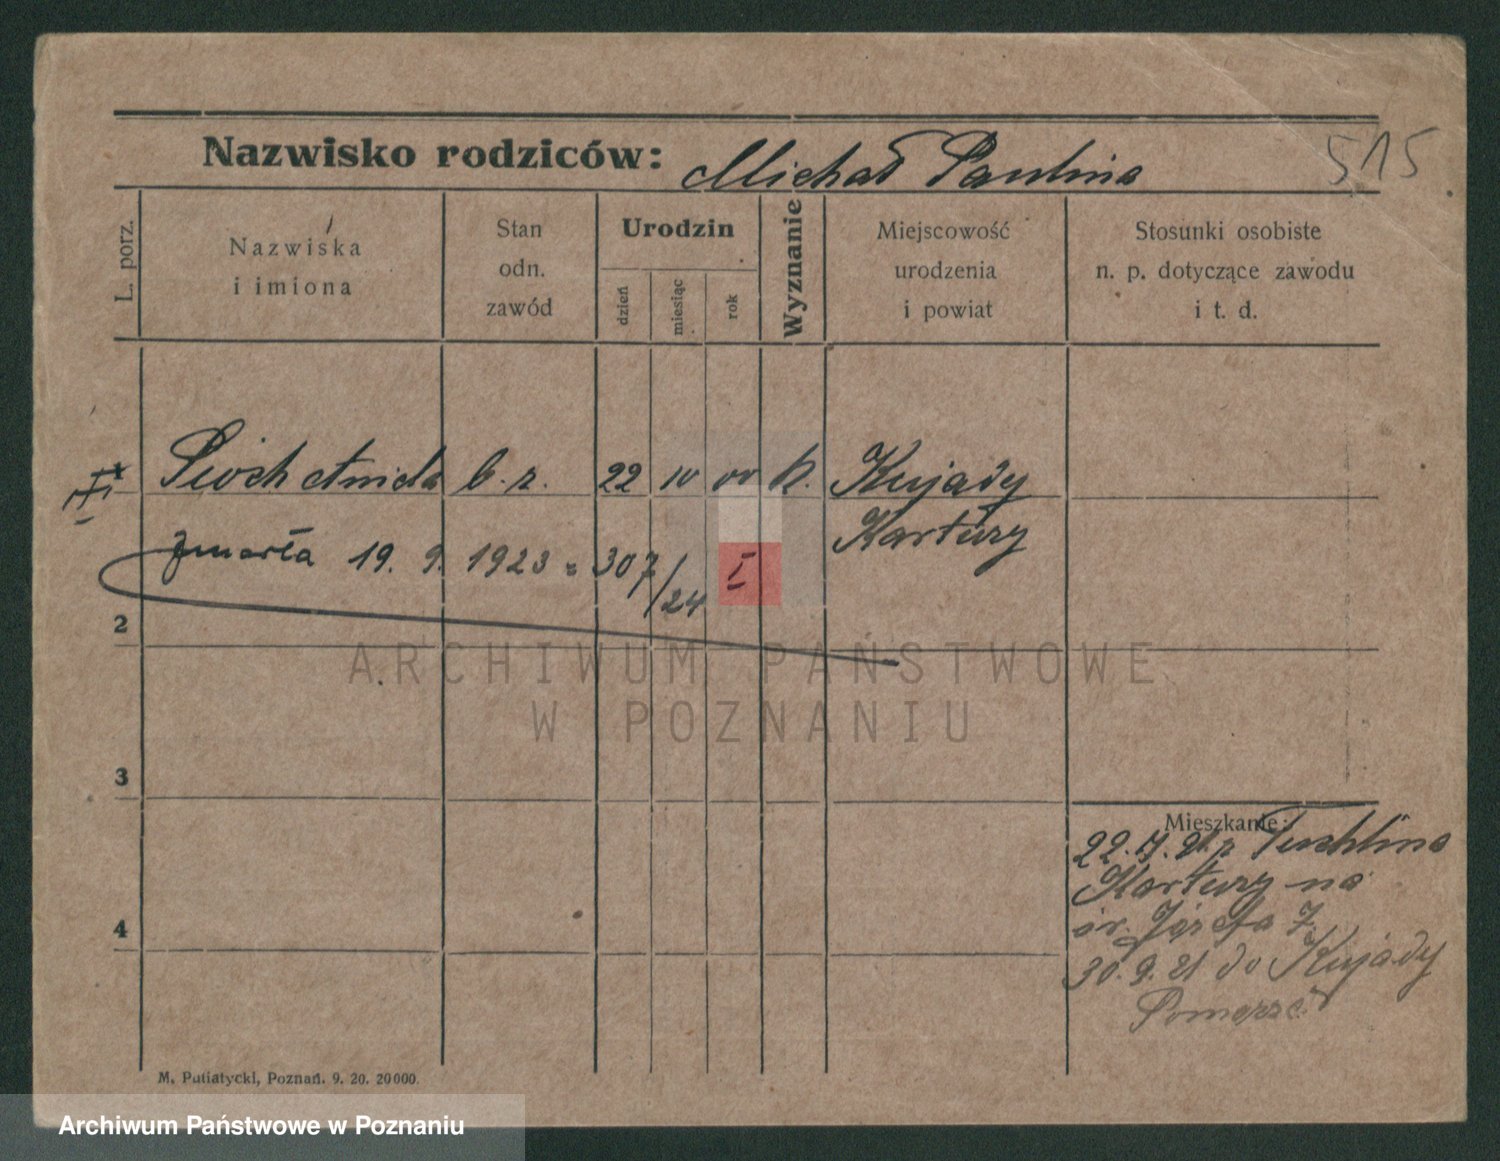 Nazwisko rodziców: Michał Paulina
515
L. porz.
Nazwiska
i imiona
Stan
odn.
zawód
Urodzin
dzień
miesiąc
rok
Wyznanie
Miejscowość
urodzenia
i powiat
Stosunki osobiste
n. p. dotyczące zawodu
i t. d.
b. r. 22 10 00 k. Kujady
Kartuzy
zmarła 19. 9. 1923 = 307/24 I
2
ARCHIWUM PAŃSTWOWE
W POZNANIU
3
Mieszkanie:
Kartuzy na
4
św. Józefa 7.
30. 9. 21 do Kujady
Pomorze
M. Putiatycki, Poznań. 9. 20. 20000.
Archiwum Państwowe w Poznaniu